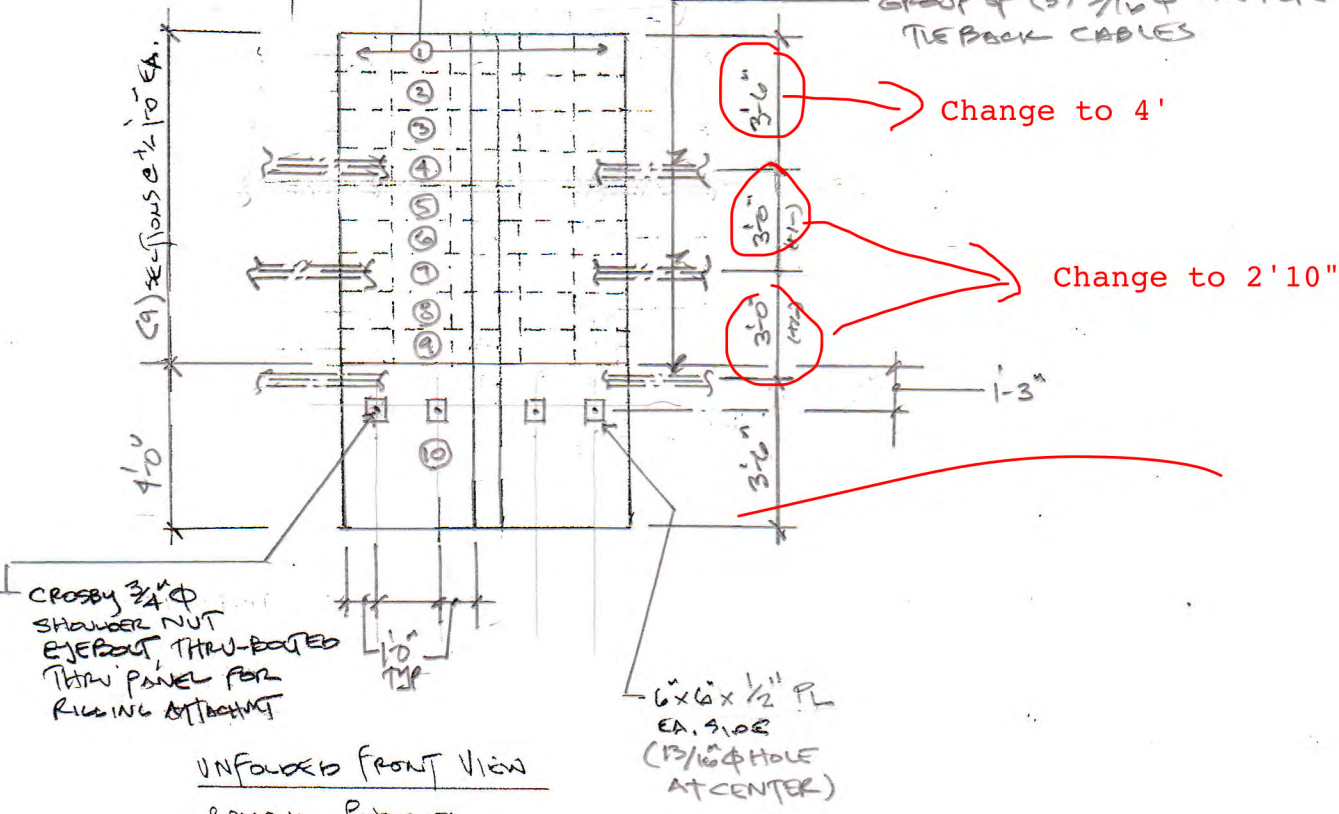 TIE BACK CABLES
3'-6"
Change to 4'
(9) SECTIONS @ +/- 1'-0" EA.
1
2
3
4
5
6
7
8
9
10
3'-0"
(+/-)
3'-0"
(+/-)
Change to 2'10"
1'-3"
4'-0"
3'-6"
CROSBY 3/4"Φ
SHOULDER NUT
EYEBOLT THRU-BOLTED
THRU PANEL FOR
RIGGING ATTACHMT
1'-0"
TYP
6"x6"x1/2" PL
EA. SIDE
(13/16"Φ HOLE
AT CENTER)
UNFOLDED FRONT VIEW